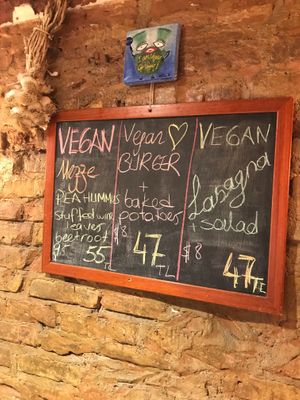 VEGAN
Mezze
PEA HUMMUS
stuffed wine
leaves
beetroot
55 TL
Vegan
BURGER
+
baked
potatoes
$8
47 TL
VEGAN
Lasagna
+ salad
$8
47 TL